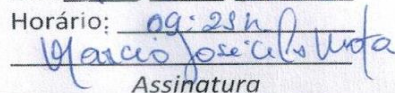 Horário: 09:25h
Marcio José
Mota
Assinatura